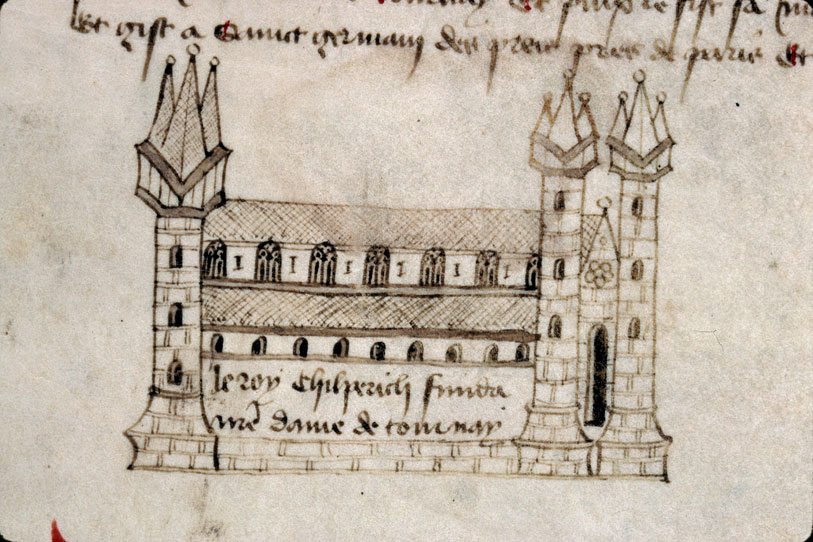 et gist a sainct germain des preis pres de paris Et
le roy Chilperich funda
nr̃e dame de tournay